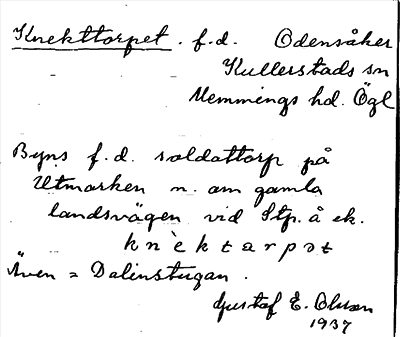 Knekttorpet. f.d. Odensåker
Kullerstads sn
Memmings hd. Ögl
Byns f.d. soldattorp på
Utmarken n. om gamla
landsvägen vid Stp. å ek.
knèktarpət
Även = Dalinstugan.
Gustaf E. Olsson
1937